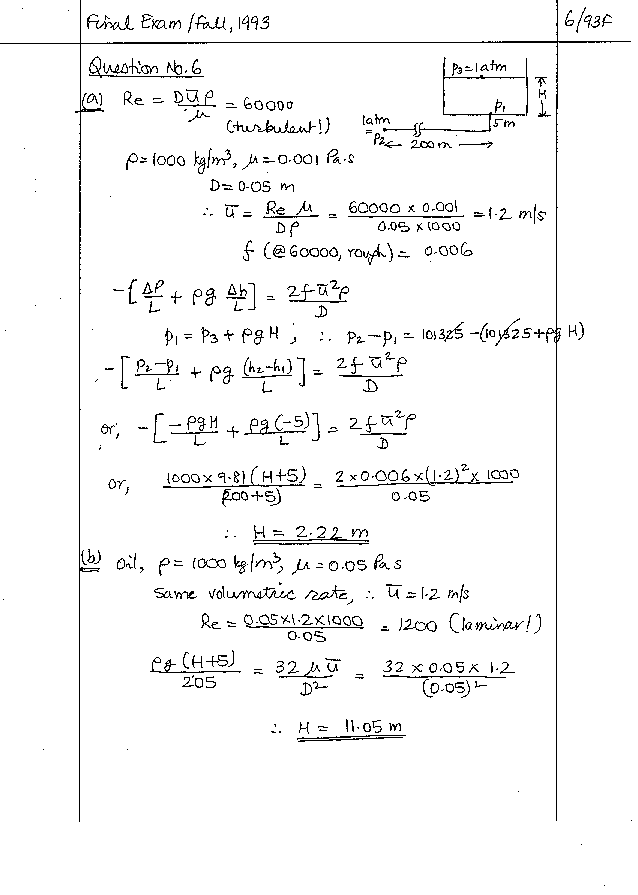 Final Exam / Fall, 1993
6/93F
Question No. 6
P₃=1atm
H
P₁
5m
1atm
= P₂ ← 200m →
(a) Re = DŪρ/μ = 60000
(turbulent!)
ρ=1000 kg/m³, μ=0.001 Pa·s
D=0.05 m
∴ Ū = Re μ/Dρ = 60000 × 0.001/0.05 × 1000 = 1.2 m/s
f (@60000, rough) = 0.006
-[ΔP/L + ρg Δh/L] = 2fū²ρ/D
P₁ = P₃ + ρgH ; ∴ P₂-P₁ = 101325 -(101325+ρg H)
-[P₂-P₁/L + ρg (h₂-h₁)/L] = 2f ū²ρ/D
or, -[-ρgH/L + ρg(-5)/L] = 2f ū²ρ/D
or, 1000 × 9.81 (H+5)/(200+5) = 2 × 0.006 × (1.2)² × 1000/0.05
∴ H = 2.22 m
(b) Oil, ρ=1000 kg/m³, μ=0.05 Pa.s
Same volumetric rate, ∴ Ū=1.2 m/s
Re = 0.05×1.2×1000/0.05 = 1200 (laminar!)
ρg (H+5)/205 = 32 μ Ū/D² = 32 × 0.05 × 1.2/(0.05)²
∴ H = 11.05 m